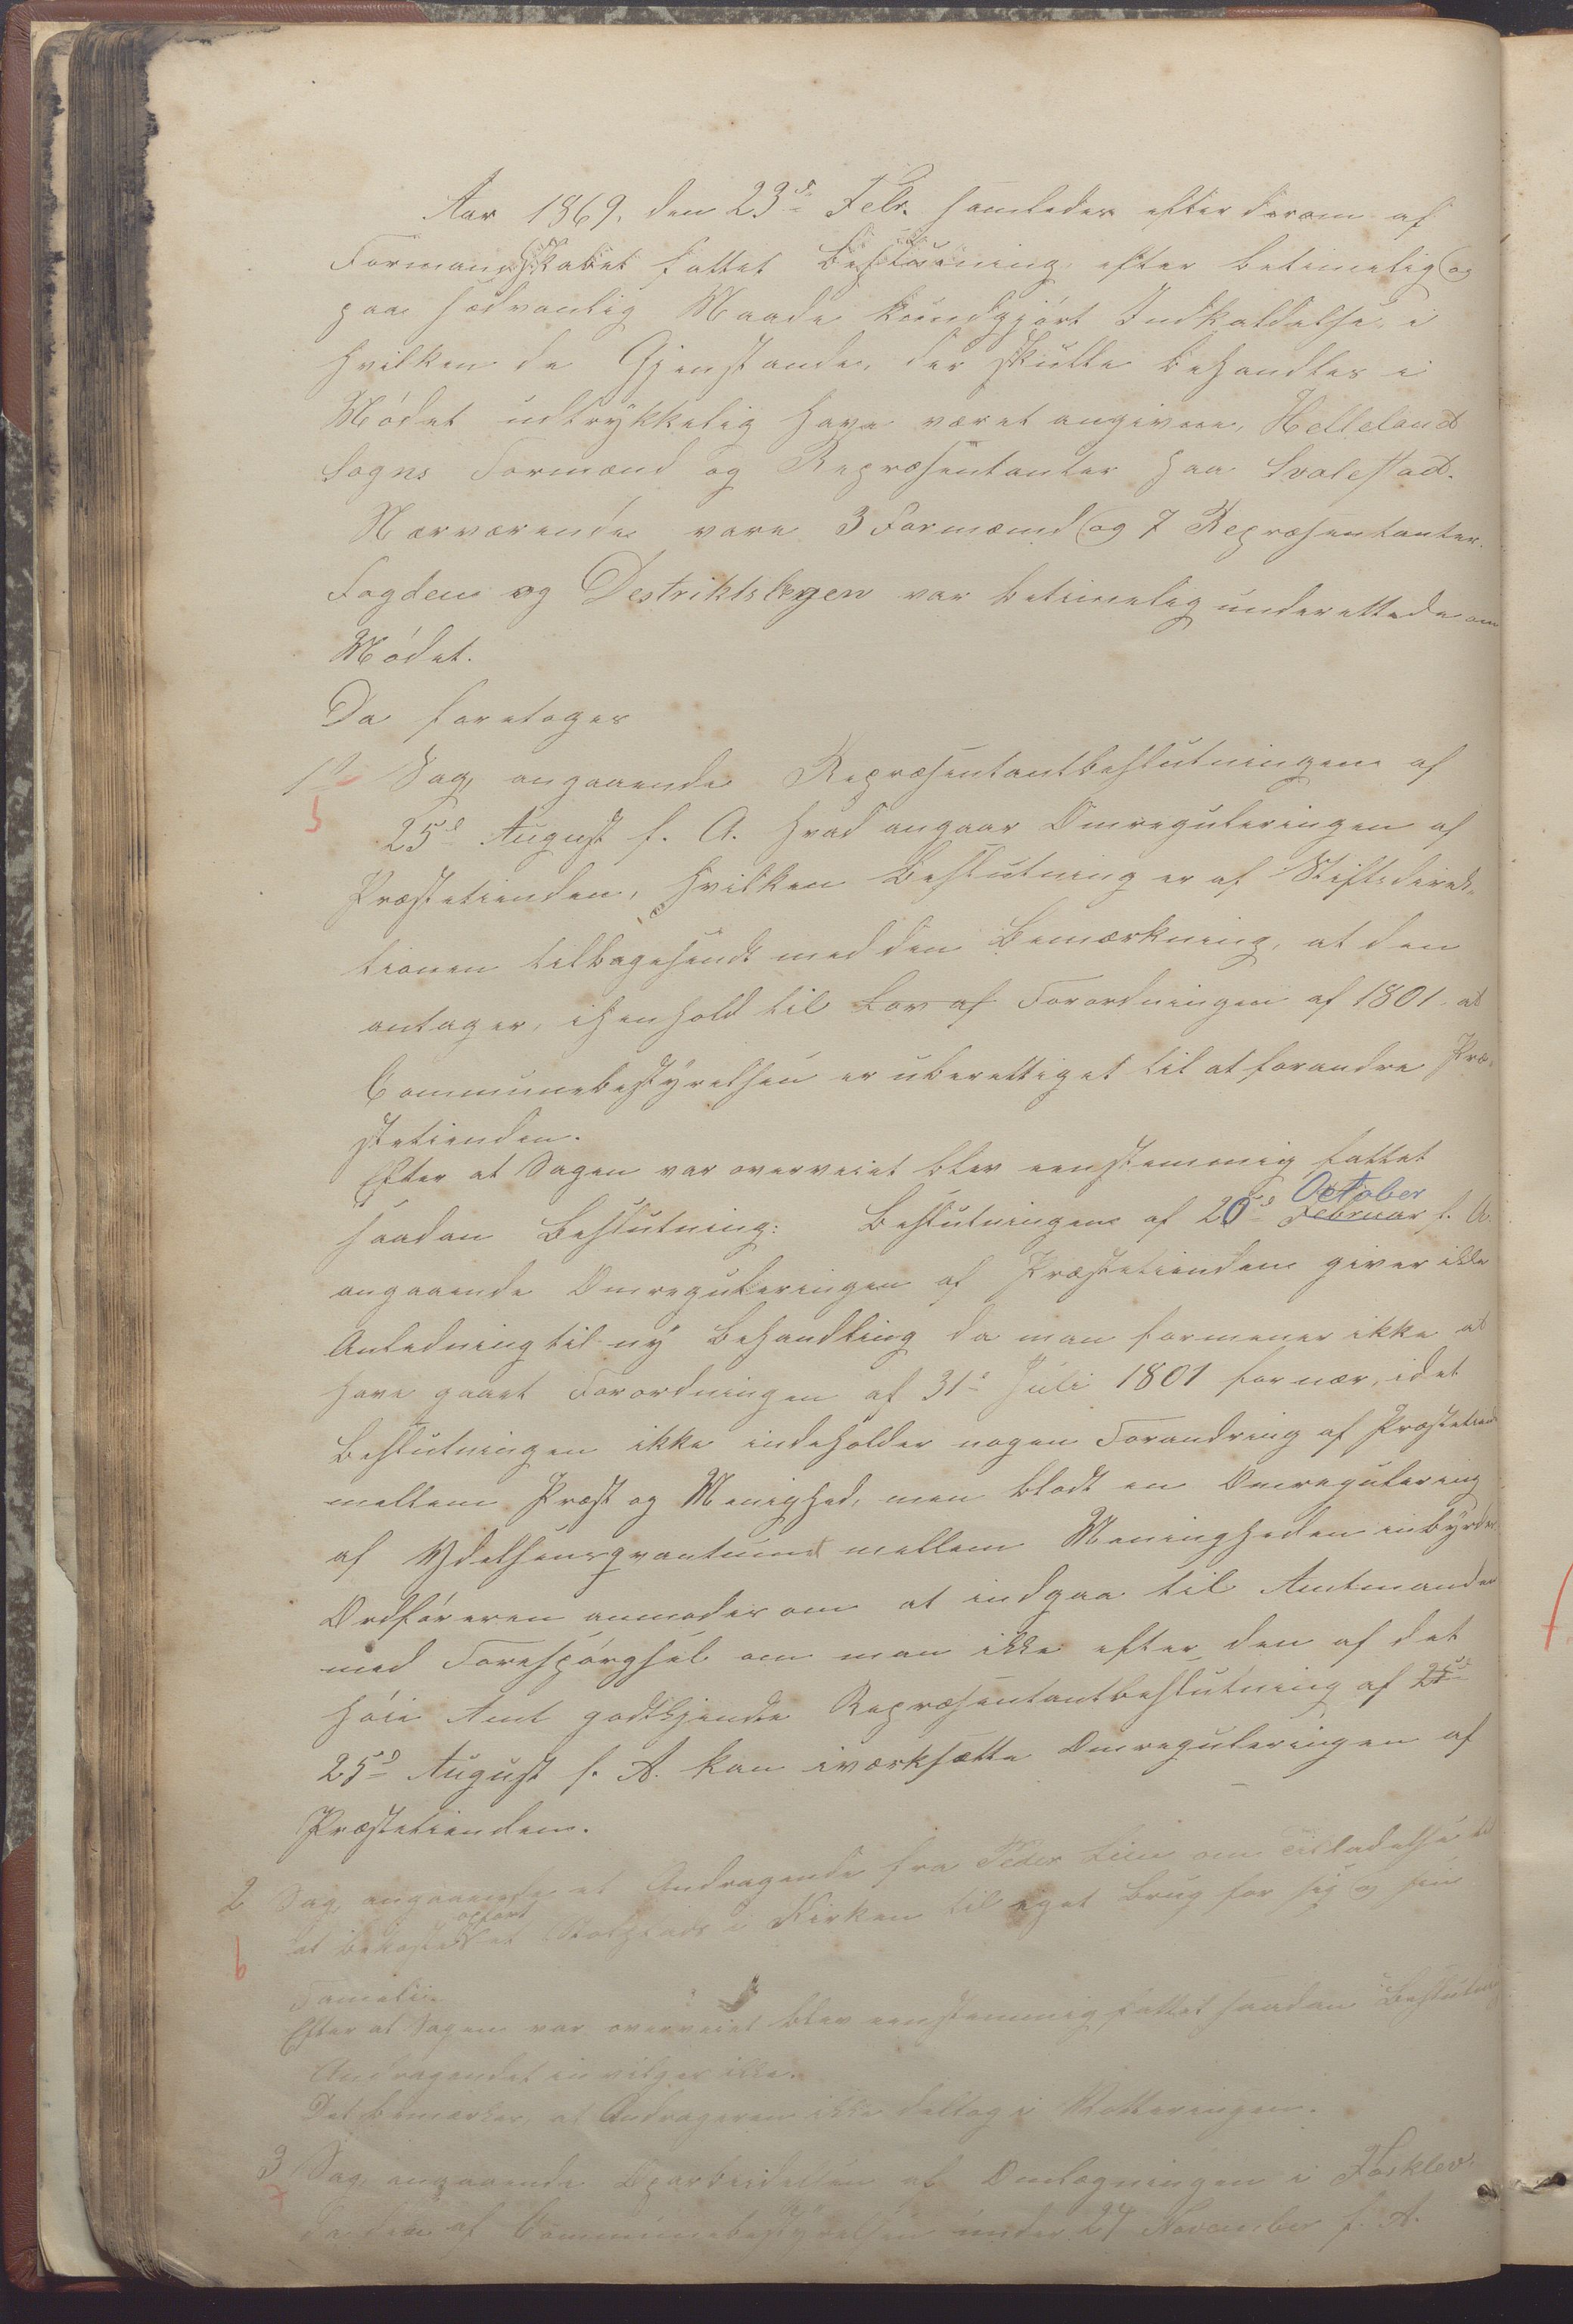 Aar 1869, den 23d Febr. samledes efter derom af
Formandskabet fattet Beslutning efter betimelig og
paa sædvanlig Maade kundgjórt Indkaldelse, i
hvilken de Gjenstande, der skulle behandles i
Módet udtrykkelig have været angivne, Helleland
Sogns Formænd og Repræsentanter paa Svalestad.
Nærværende vare 3 Formænd og 7 Repræsentanter.
Fogden og Destriktslægen var betimelig underettede om
Módet.
Da foretoges
1 Sag, angaaende Repræsentantbeslutningen af
5
25d August f. A. hvad angaar Omreguleringen af
Præstetienden, hvilken Beslutning er af Stiftsdirek-
tionen tilbagesendt med den Bemærkning, at den
antager, ihenhold til Lov af Forordningen af 1801, at
Communebestyrelsen er uberettiget til at forandre Præ-
stetienden.
Efter at Sagen var overveiet blev eenstemmig fattet
saadan Beslutning: Beslutningen af 20d Februar October f. A.
angaaende Omreguleringen af Præstetienden giver ikke
Anledning til ny Behandling da man formener ikke at
have gaaet Forordningen af 31te Juli 1801 for nær, idet
Beslutningen ikke indeholder nogen Forandring af Præstetiend
mellem Præst og Menighed, men blodt en Omregulering
af Ydelsensqvantum mellem Meningheden inbyrdes
Ordfóreren anmodes om at indgaa til Amtmanden
med Forespórgsel om man ikke efter den af det
hóie Amt godkjendte Repræsentantbeslutning af
25d August f. A. kan iværksætte Omreguleringen af
Præstetienden.
2 Sag angaaende et Andragende fra Peder Lien om Tilladelse til
6
at bekoste opfórt et Stolestade i Kirken til eget Brug for sig og sin
Familie
Efter at Sagen var overveiet blev eenstemmig fattet saadan Beslutning
Andragendet invilges ikke.
Det bemærkes, at Andrageren ikke deltog i Votteringen.
3 Sag angaaende Oparbeidelsen af Omlægningen i
7
da den af Communebestyrelsen under 24 November f. A.